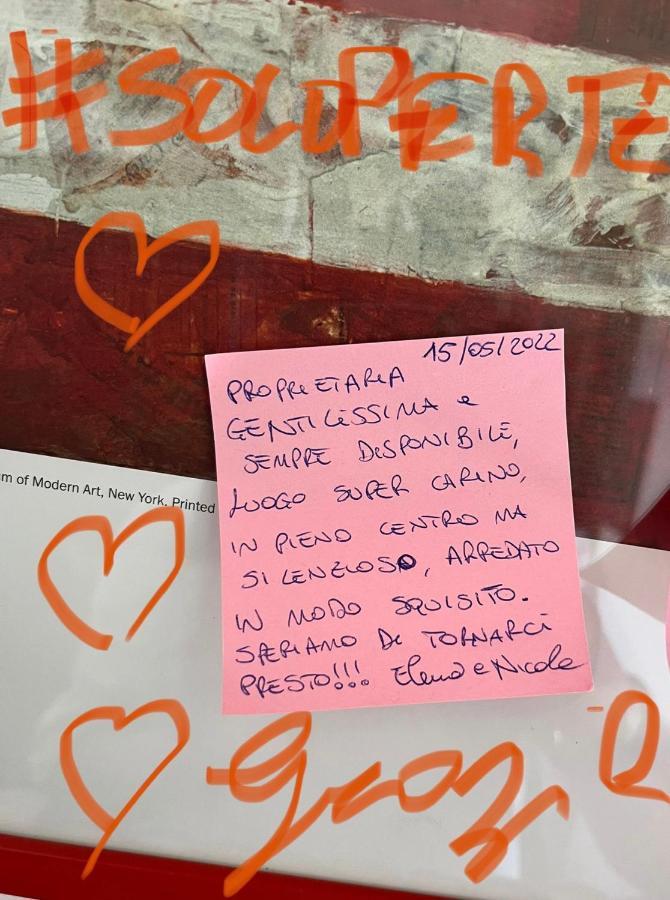 #SOLOPERTE
15/05/2022
PROPRIETARIA
GENTILISSIMA e
SEMPRE DISPONIBILE,
LUOGO SUPER CARINO,
IN PIENO CENTRO MA
SILENZIOSO, ARREDATO
IN MODO SQUISITO.
SPERIAMO DI TORNARCI
PRESTO!!! Elena e Nicola
m of Modern Art, New York. Printed